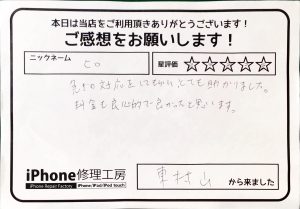 本日は当店をご利用頂きありがとうございます！
ご感想をお願いします！
ニックネーム
co
星評価 ☆☆☆☆☆
対応をしてもらいとても助かりました。
料金も良心的で良かったと思います。
iPhone修理工房
iPhone Repair Factory iPhone/iPad/iPod touch
東村山 から来ました